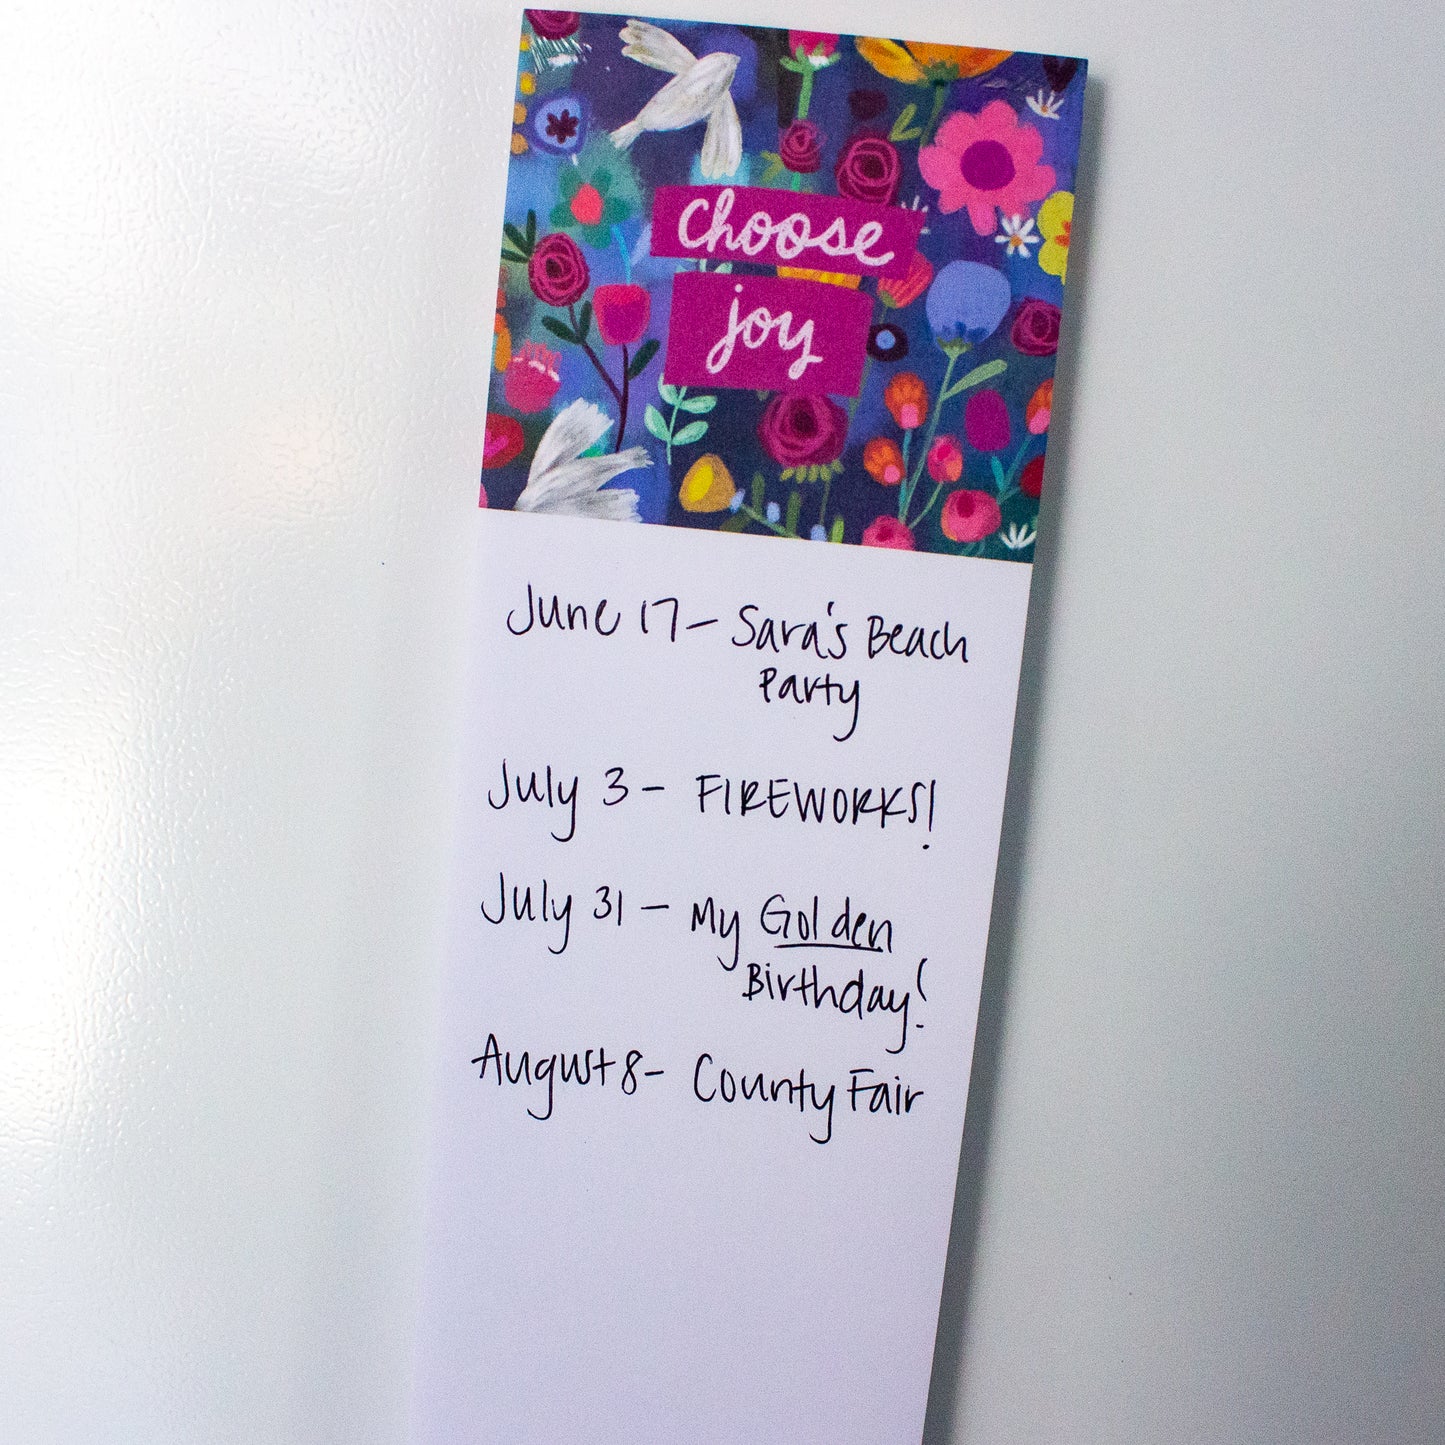 choose
joy
June 17 - Sara's Beach
Party
July 3 - FIREWORKS!
July 31 - My Golden
Birthday!
August 8 - County Fair